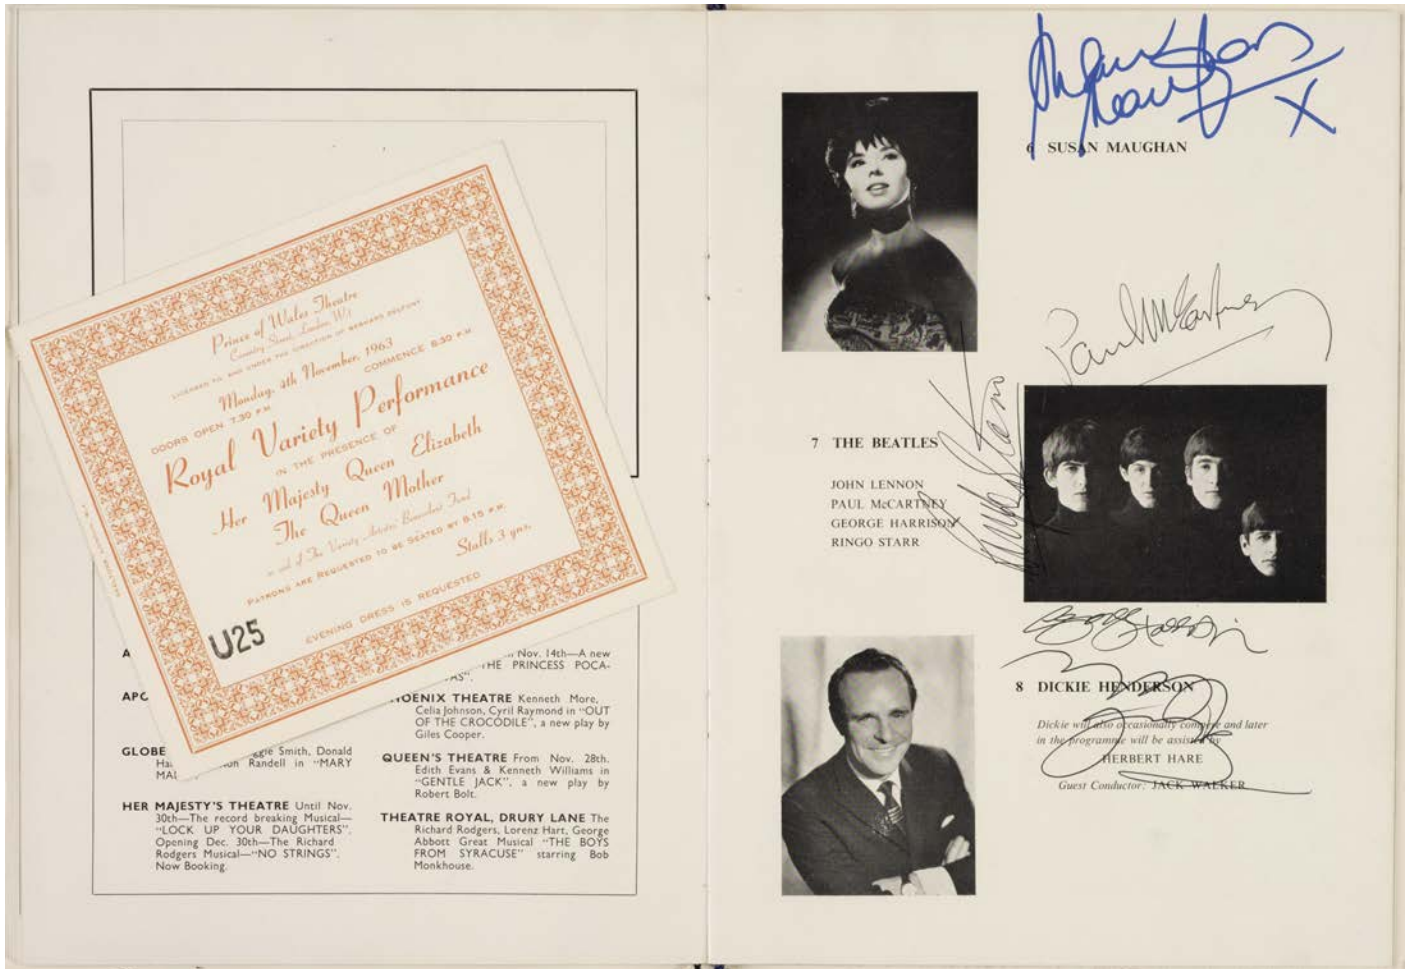 Prince of Wales Theatre
Coventry Street, London, W.1
LICENSED TO AND UNDER THE DIRECTION OF BERNARD DELFONT
Monday, 4th November, 1963
DOORS OPEN 7.30 P.M.
COMMENCE 8.30 P.M.
Royal Variety Performance
IN THE PRESENCE OF
Her Majesty Queen Elizabeth
The Queen Mother
in aid of The Variety Artistes' Benevolent Fund
PATRONS ARE REQUESTED TO BE SEATED BY 8.15 P.M.
Stalls 3 gns.
EVENING DRESS IS REQUESTED
U25
A
APO
GLOBE
gie Smith, Donald
Ha
on Randell in "MARY
MA
HER MAJESTY'S THEATRE Until Nov.
30th—The record breaking Musical—
"LOCK UP YOUR DAUGHTERS".
Opening Dec. 30th—The Richard
Rodgers Musical—"NO STRINGS".
Now Booking.
Nov. 14th—A new
THE PRINCESS POCA-
AS".
OENIX THEATRE Kenneth More,
Celia Johnson, Cyril Raymond in "OUT
OF THE CROCODILE", a new play by
Giles Cooper.
QUEEN'S THEATRE From Nov. 28th.
Edith Evans & Kenneth Williams in
"GENTLE JACK", a new play by
Robert Bolt.
THEATRE ROYAL, DRURY LANE The
Richard Rodgers, Lorenz Hart, George
Abbott Great Musical "THE BOYS
FROM SYRACUSE" starring Bob
Monkhouse.
X
6 SUSAN MAUGHAN
Paul McCartney
Ringo Starr
7 THE BEATLES
JOHN LENNON
PAUL McCARTNEY
GEORGE HARRISON
RINGO STARR
George Harrison
8 DICKIE HENDERSON
Dickie will also occasionally compère and later
in the programme will be assisted by
HERBERT HARE
Guest Conductor: JACK WALKER